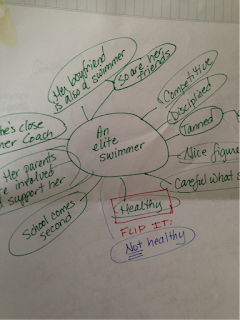 Her boyfriend
is also a swimmer
so are her
friends
Competitive
Disciplined
Tanned
Nice figur
Careful what s
Healthy
FLIP IT:
Not healthy
School comes
second
Her parents
re involved
support her
he's close
her Coach
An
elite
Swimmer